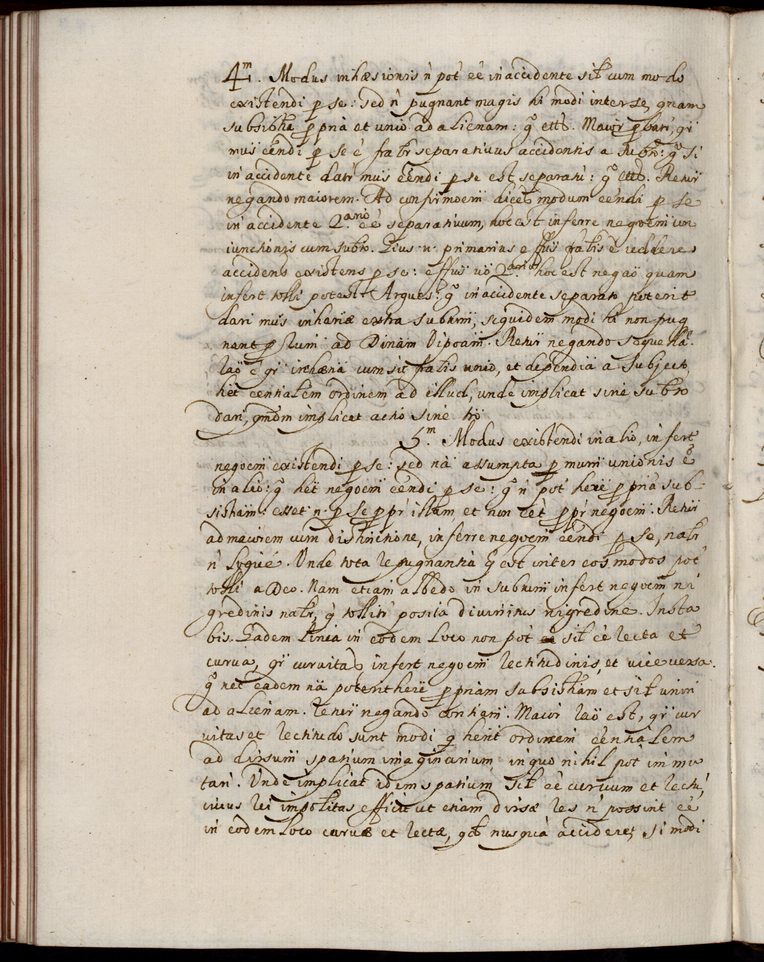 4.m Modus inhæsionis ñ pot ẽẽ in accidente sił cum modo
existendi p se: sed ñ pugnant magis hi modi inter se, quam
subsisña p pria et unio ad alienam: g etc. Maior pbatr, qr
mus ẽẽndi p se ẽ fralr separativus accidentis a subro: g si
in accidente datr mus ẽẽndi p se est separari: g etc. Rentr
negando maiorem. Ad confirmoem dices modum ẽẽndi p se
in accidente 2.ario ẽẽ separativum, hoc est inferre negoem con
iunctionis cum subro. Eius n. primarius effus fralis ẽ reddere
accidens existens p se: effus vo 2.arius hoc est negao quam
infert tolli potest. Argues: g in accidente separato poterit
dari mus inhæriæ extra subium, siquidem modi hi non pug
nant p solum ad Dinam Dipoam. Rentr negando sequellã.
Rao ẽ qr inhæria cum sit fralis unio, et dependia a subjecto,
het ẽẽntialem ordinem ad illud, unde implicat sine subro
dari, quom implicat actio sine tro
5.m Modus existendi in alio, infert
negoem existendi p se: sed nã assumpta p mum unionis ẽ
in alio: g het negoem ẽẽndi p se: g ñ pot here p priã sub-
sistiam: esset n. p se p pr istam et non ẽẽt p pr negoem. Rentr
ad maiorem cum distinctione, inferre negoem ẽẽndi p se, nalr
ñ logice. Unde tota repugnantia q est inter eos modos pot
tolli a Deo. Nam etiam albedo in subium infert negoem ni
gredinis nalr, q tollitr posita divinitus nigredine. Insta
bis. Eadem linea in eodem loco non pot sił ẽẽ recta et
curva, qr curvitas infert negoem rectitudinis, et vice versa.
g nec eadem nã poterit here p priam subsistiam et sił uniri
ad alienam. Rentr negando conñam. Maior rao est, qr cur
vitas et rectitudo sunt modi q hent ordinem ẽẽntialem
ad diversum spatium imaginarium in quo nihil pot immu
tari. Unde implicat idem spatium sił ẽẽ curvum et rectũ,
cuius rei impolitas efficit ut etiam diversæ res ñ possint ẽẽ
in eodem loco curvæ et rectæ, qd nusquã accideret, si modi